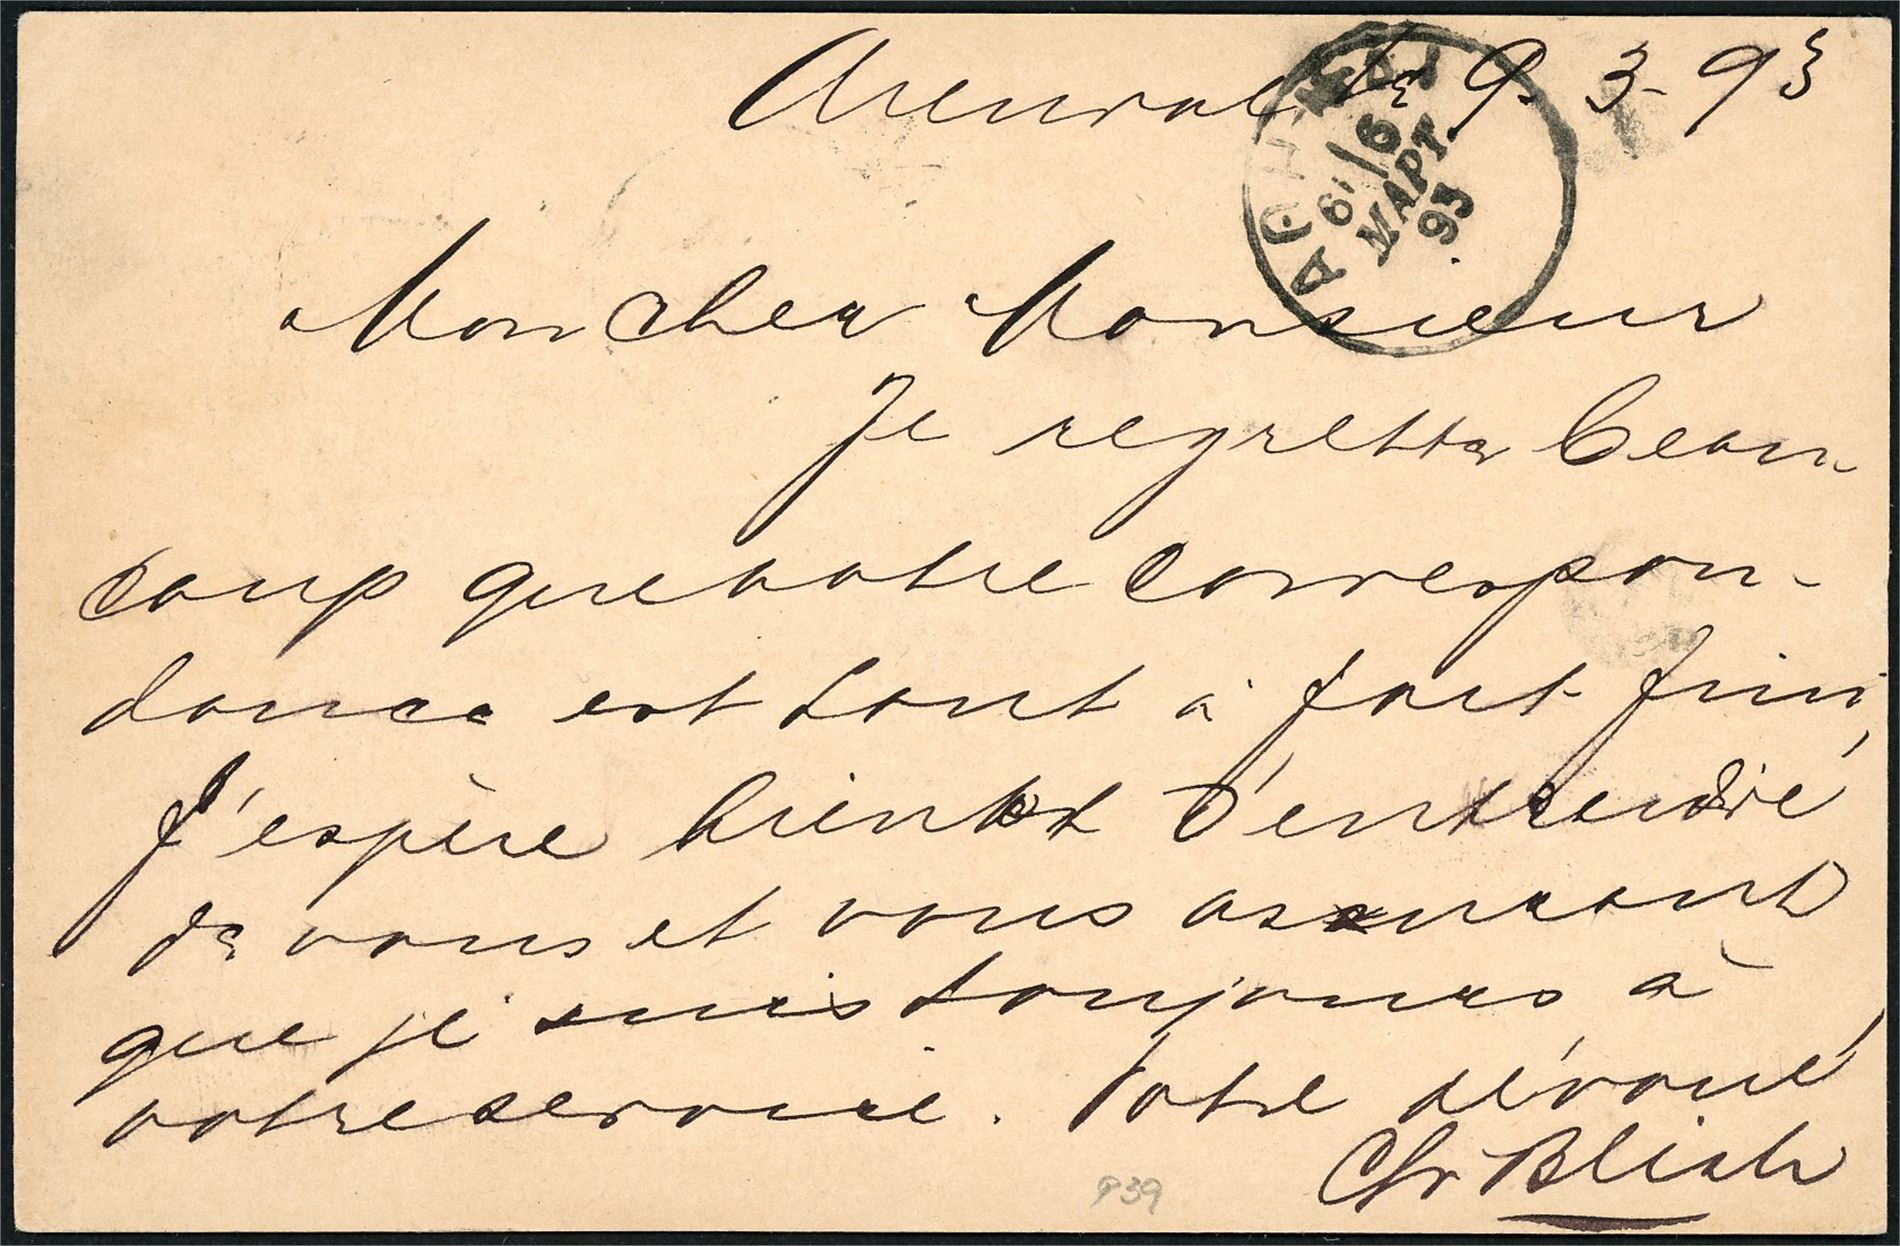 Arenvalde 9. 3. 93
6/6
МАРТ.
93
Mon cher Monsieur
Je regrette beau-
coup que votre correspon-
dance est tout à fait fini,
J'espère bientot d'entendre
de vous et vous assurant
que je suis toujours à
votre service. Votre dévoué,
Chr Blish
P39